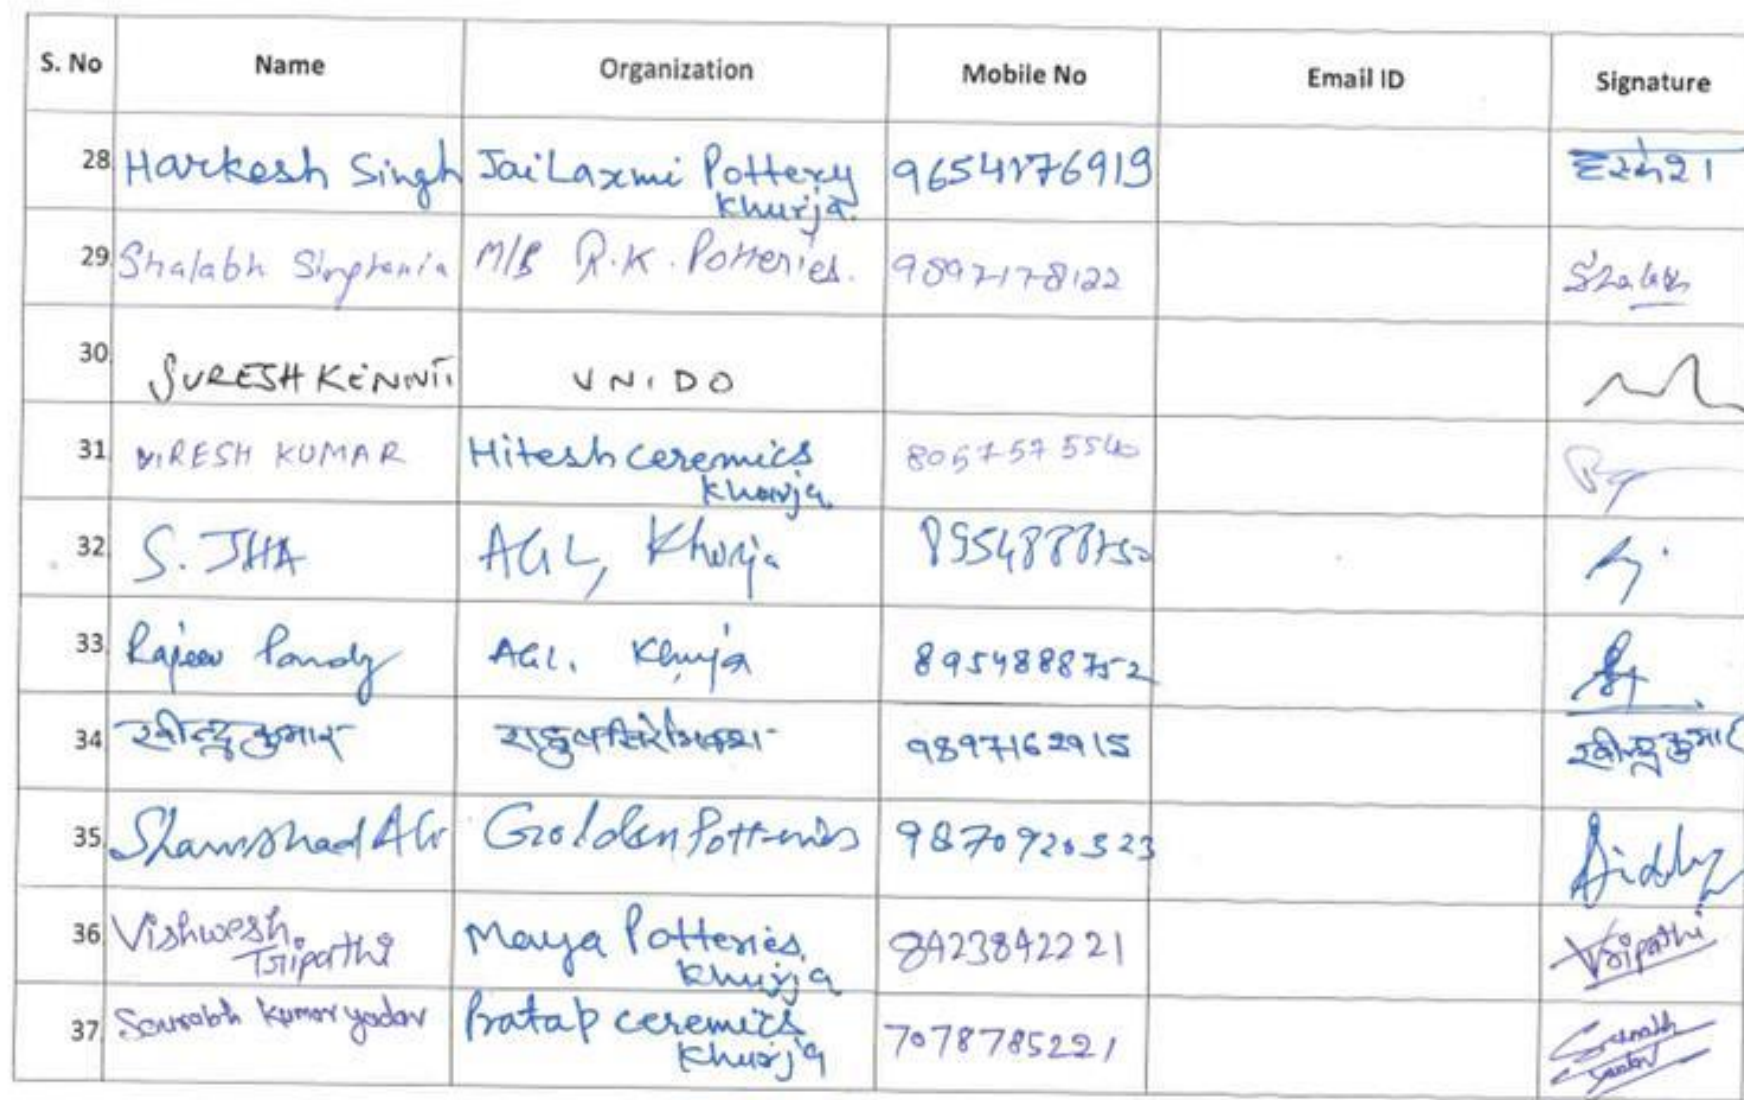 S. No Name Organization Mobile No Email ID Signature
28 Harkesh Singh Jai Laxmi Pottery 9654176919 हरकेश
Khurja.
29 Shalabh Singhania M/s R.K. Potteries. 9897178122 Shalabh
30 SURESH KENNIT UNIDO
31 VIRESH KUMAR Hitesh ceremics 8057575540
Khurja
32 S. JHA AGL, Khurja 8954888750
33 Rajeev Pandy AGL. Khurja 8954888752
34 रवीन्द्र कुमार 9897162915 रवीन्द्र कुमार
35 Shamshad Ali Golden Potteries 9870920523
36 Vishwesh Maya Potteries, 8423842221 Tripathi
Tripathi Khurja
37 Sourabh Kumar yadav Pratap ceremics 7078785221 Sourabh
Khurja Yadav